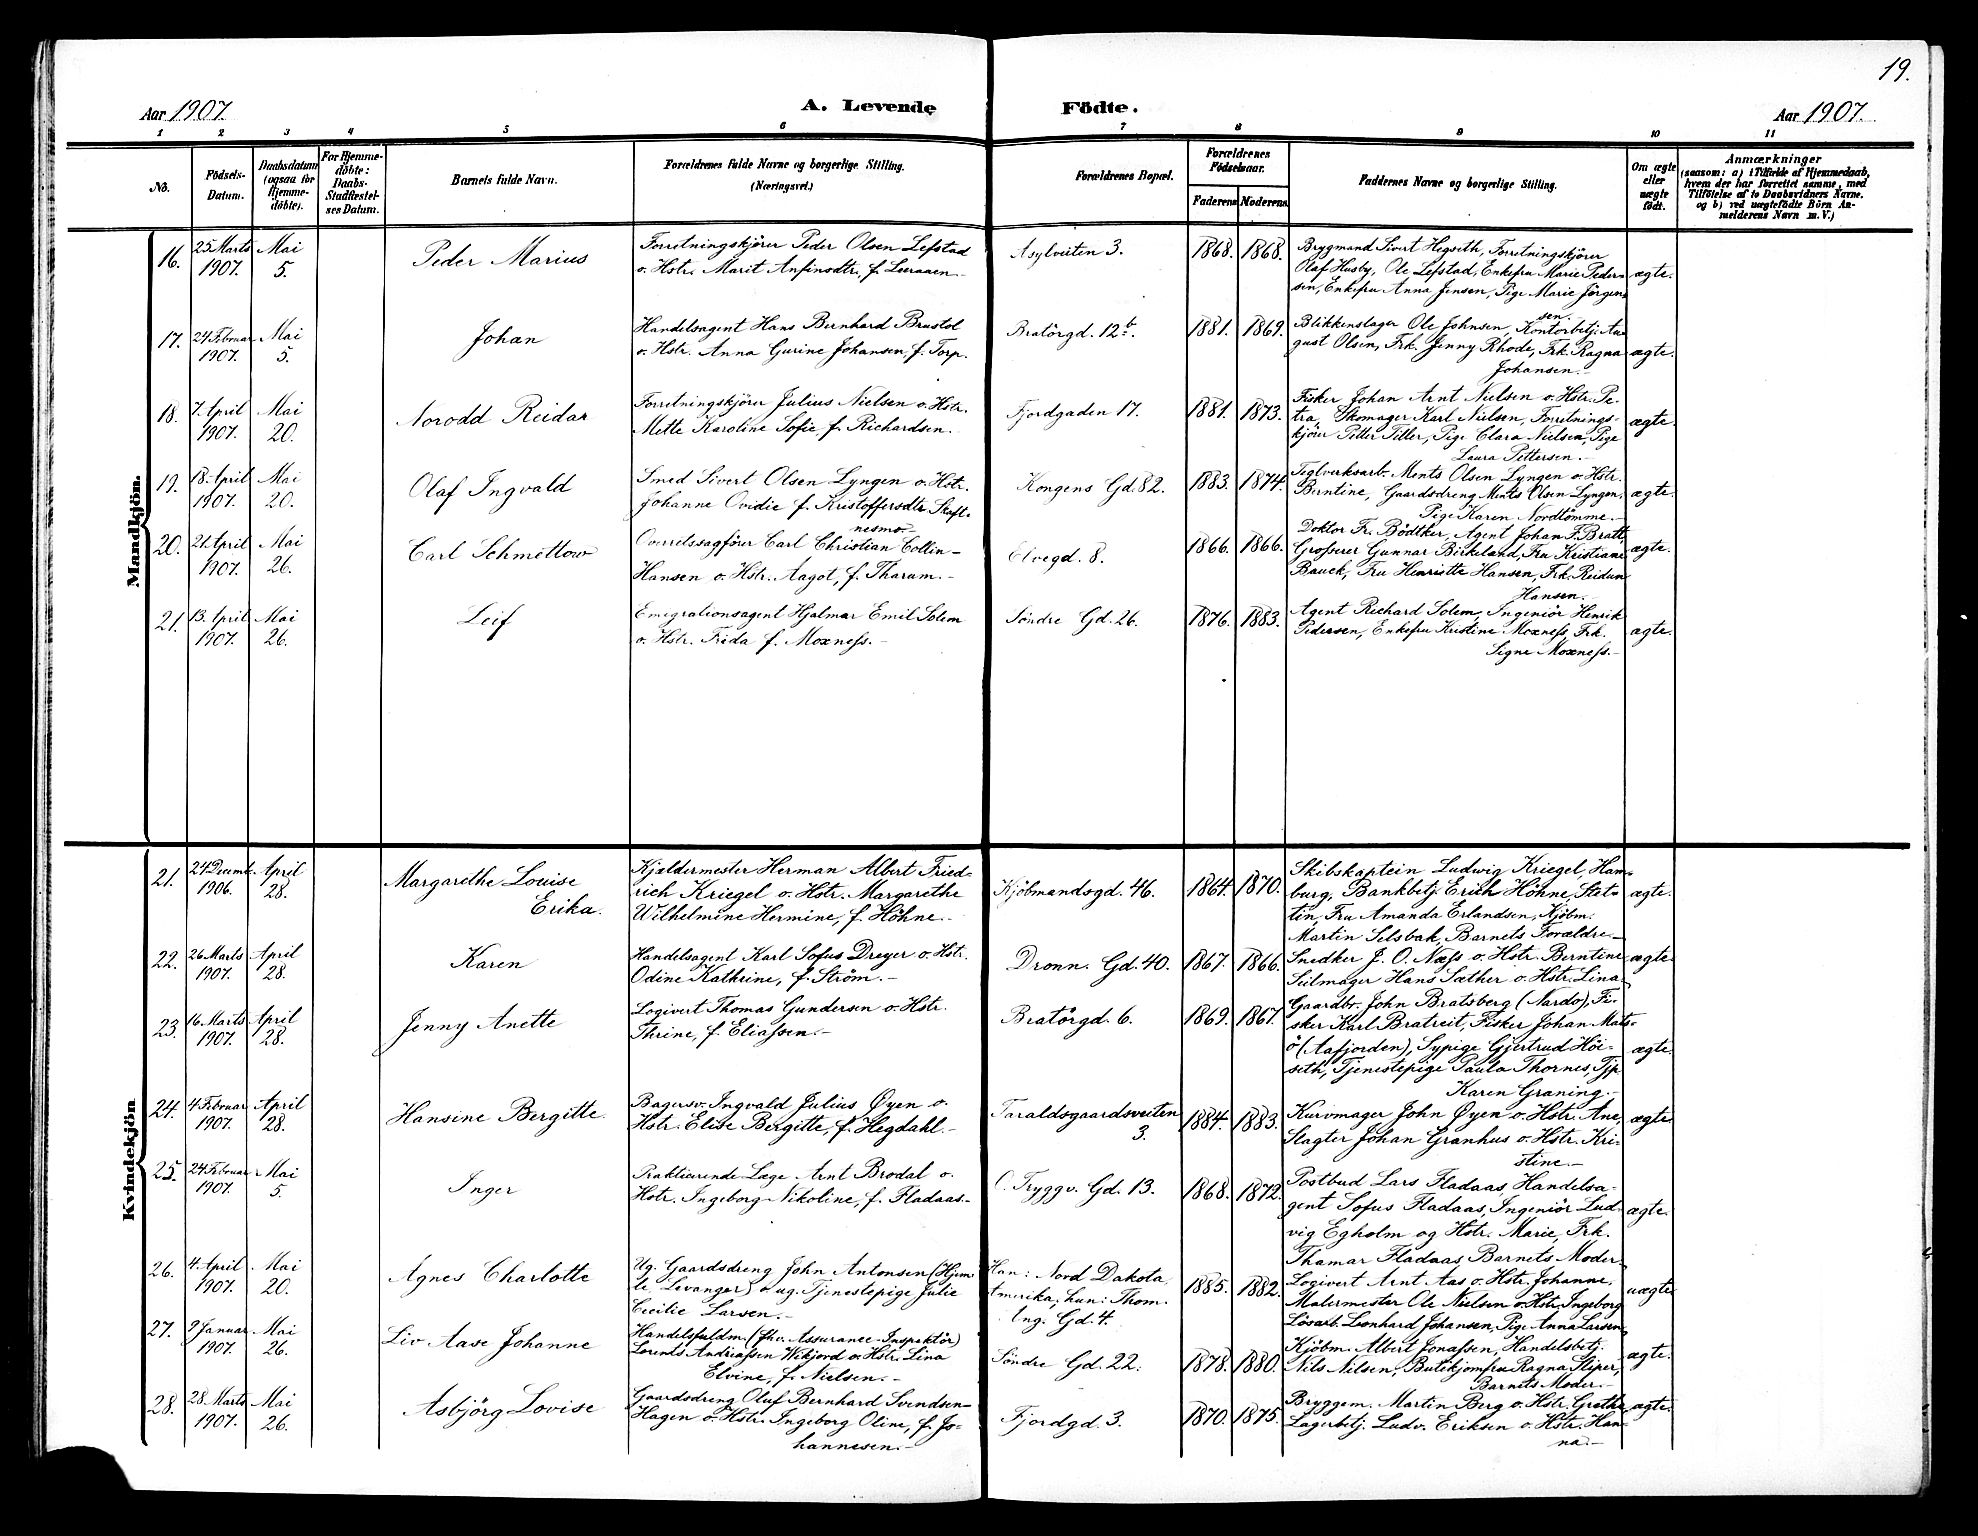 19.
Aar 1907.
A. Levende Födte.
Aar 1907.
1 2 3 4 5 6 7 8 9 10 11
No.
Födsels-Datum.
Daabsdatum (ogsaa for Hjemme-döbte).
For Hjemme-döbte: Daabs-Stadfæstel-ses Datum.
Barnets fulde Navn.
Forældrenes fulde Navne og borgerlige Stilling.
(Næringsvei.)
Forældrenes Bopæl.
Forældrenes Födselsaar.
Faderens
Moderens
Faddernes Navne og borgerlige Stilling.
Om ægte eller uægte födt.
Anmærkninger
(saasom: a) i Tilfælde af Hjemmedaab,
hvem der har forrettet samme, med
Tilföielse af to Daabsvidners Navne.
og b) ved uægtefödte Börn An-
melderens Navn m. V.)
Mandkjön.
16. 25 Marts 1907. Mai 5. Peder Marius
Forretningskjörer Peder Olsen Lefstad
o. Hstr. Marit Anfinsdtr. f. Leeraaen
Asylveiten 3. 1868. 1868.
Brygmand Sivert Hegseth, Forretningskjörer
Olaf Husby, Ole Lefstad, Enkefru Marie Peder-
sen, Enkefru Anna Jensen, Pige Marie Jörgen-
sen.
ægte.
17. 24 Februar 1907. Mai 5. Johan
Handelsagent Hans Bernhard Brustol
o. Hstr. Anna Gurine Johansen, f. Torp.
Bratörgd. 12b. 1881. 1869.
Blikkenslager Ole Johnsen, Kontorbetj. Au-
gust Olsen, Frk. Jenny Rhode, Frk. Ragna
Johansen.-
ægte.
18. 7 April 1907. Mai 20. Norodd Reidar
Forretningskjörer Julius Nielsen o. Hstr.
Mette Karoline Sofie f. Richardsen.
Fjordgaden 17. 1881. 1873.
Fisker Johan Arnt Nielsen o. Hstr. Pe-
tra, Skomager Karl Nielsen, Forretnings-
kjörer Petter Tiller, Pige Clara Nielsen, Pige
Laura Pettersen.-
ægte.
19. 18. April 1907. Mai 20. Olaf Ingvald
Smed Sivert Olsen Lyngen o. Hstr.
Johanne Ovidie f. Kristoffersdtr. Skaft-
nesmo
Kongens Gd. 82. 1883. 1874.
Teglverksarb. Ments Olsen Lyngen o. Hstr.
Berntine, Gaardsdreng Ments Olsen Lyngen,
Pige Karen Nordtömme.-
ægte.
20. 21. April 1907. Mai 26. Carl Schmettow
Overretssagförer Carl Christian Collin-
Hansen o. Hstr. Aagot, f. Tharum.-
Elvegd. 8. 1866. 1866.
Doktor Fr. Bödtker, Agent Johan F. Bratt
Grosserer Gunnar Birkeland, Fru Kristiane
Bauck, Fru Henriette Hansen, Frk. Reidun
Hansen.-
ægte.
21. 13. April 1907. Mai 26. Leif
Emigrationsagent Hjalmar Emil Solem
o. Hstr. Freda f. Moxness.-
Söndre Gd. 26. 1876. 1883.
Agent Richard Solem, Ingeniör Henrik
Pedersen, Enkefru Kristine Moxness, Frk.
Signe Moxness.-
ægte.
Kvindekjön
21. 24 Decembr. 1906. April 28. Margarethe Louise
Erika.
Kjældermester Herman Albert Fried-
rich Kriegel o. Hstr. Margarethe
Wilhelmine Hermine, f. Höhne.-
Kjöbmandsgd. 46. 1864. 1870.
Skibskaptein Ludwig Kriegel, Ham-
burg, Bankbetj. Erich Höhne, Stet-
tin, Fru Amanda Erlandsen, Kjöbm.
Martin Selsbak, Barnets Forældre-
ægte.
22. 26 Marts 1907. April 28. Karen
Handelsagent Karl Sofus Dreyer o. Hstr.
Odine Kathrine, f. Ström.-
Dronn. Gd. 40. 1867. 1866.
Snedker J. O. Næss o. Hstr. Berntine
Seilmager Hans Sæther o. Hstr. Lina-
ægte.
23. 16 Marts 1907. April 28. Jenny Anette
Logivert Thomas Gundersen o. Hstr.
Thrine, f. Eliassen.-
Bratörgd. 6. 1869. 1867.
Gaardbr. John Bratsberg (Nardo), Fi-
sker Karl Bratreit, Fisker Johan Mats-
ö (Aafjorden), Sypige Gjertrud Höi-
seth, Tjenestepige Paula Thornes, Tjp
Karen Graning.-
ægte.
24. 4 Februar 1907. April 28. Hansine Bergitte.
Bagersv. Ingvald Julius Øyen o.
Hstr. Elise Bergitte, f. Hegdahl.-
Taraldsgaardsveiten
3. 1884. 1883.
Kurvmager John Øyen o. Hstr. Ane,
Slagter Johan Granhus o. Hstr. Kri-
stine.-
ægte.
25. 24 Februar 1907. Mai 5. Inger
Praktiserende Læge Arnt Brodal o.
Hstr. Ingeborg Nikoline, f. Fladaas-
O. Tryggv. Gd. 13. 1868. 1872.
Postbud Lars Fladaas, Handelsa-
gent Sofus Fladaas, Ingeniör Lud-
vig Egholm og Hstr. Marie, Frk.
Thamar Fladaas, Barnets Moder
ægte.
26. 4. April 1907. Mai 20. Agnes Charlotte
Ug. Gaardsdreng John Antonsen (Hjem-
le. Levanger) o. ug. Tjenestepige Julie
Cecilie Larsen.-
Han: Nord Dakota
Amerika; hun: Thom.
Ang. Gd. 4. 1885. 1882.
Logivert Arnt Aas o. Hstr. Johanne,
Malermester Ole Nielsen o. Hstr. Ingeborg
Lösarb. Leonhard Johansen, Pige Anna Larsen
uægte.
27. 9 Januar 1907. Mai 26. Liv Aase Johanne
Handelsfuldm. (fhv. Assurance-Inspektör)
Lorents Andreassen Wikjord o. Hstr. Lina
Elvine, f. Nielsen.-
Söndre Gd. 22. 1878. 1880.
Kjöbm. Albert Jonassen, Handelsbetj.
Nils Nilsen, Butikjomfru Ragna Sliper,
Barnets Moder.-
ægte.
28. 28 Marts 1907. Mai 26. Asbjörg Lovise
Gaardsdreng Oluf Bernhard Svendsen
Hagen o. Hstr. Ingeborg Oline, f. Jo-
hannesen.-
Fjordgd. 3. 1870. 1875.
Bryggem. Martin Berg o. Hstr. Grethe
Lagerbetj. Ludv. Eriksen o. Hstr. Han-
na.-
ægte.